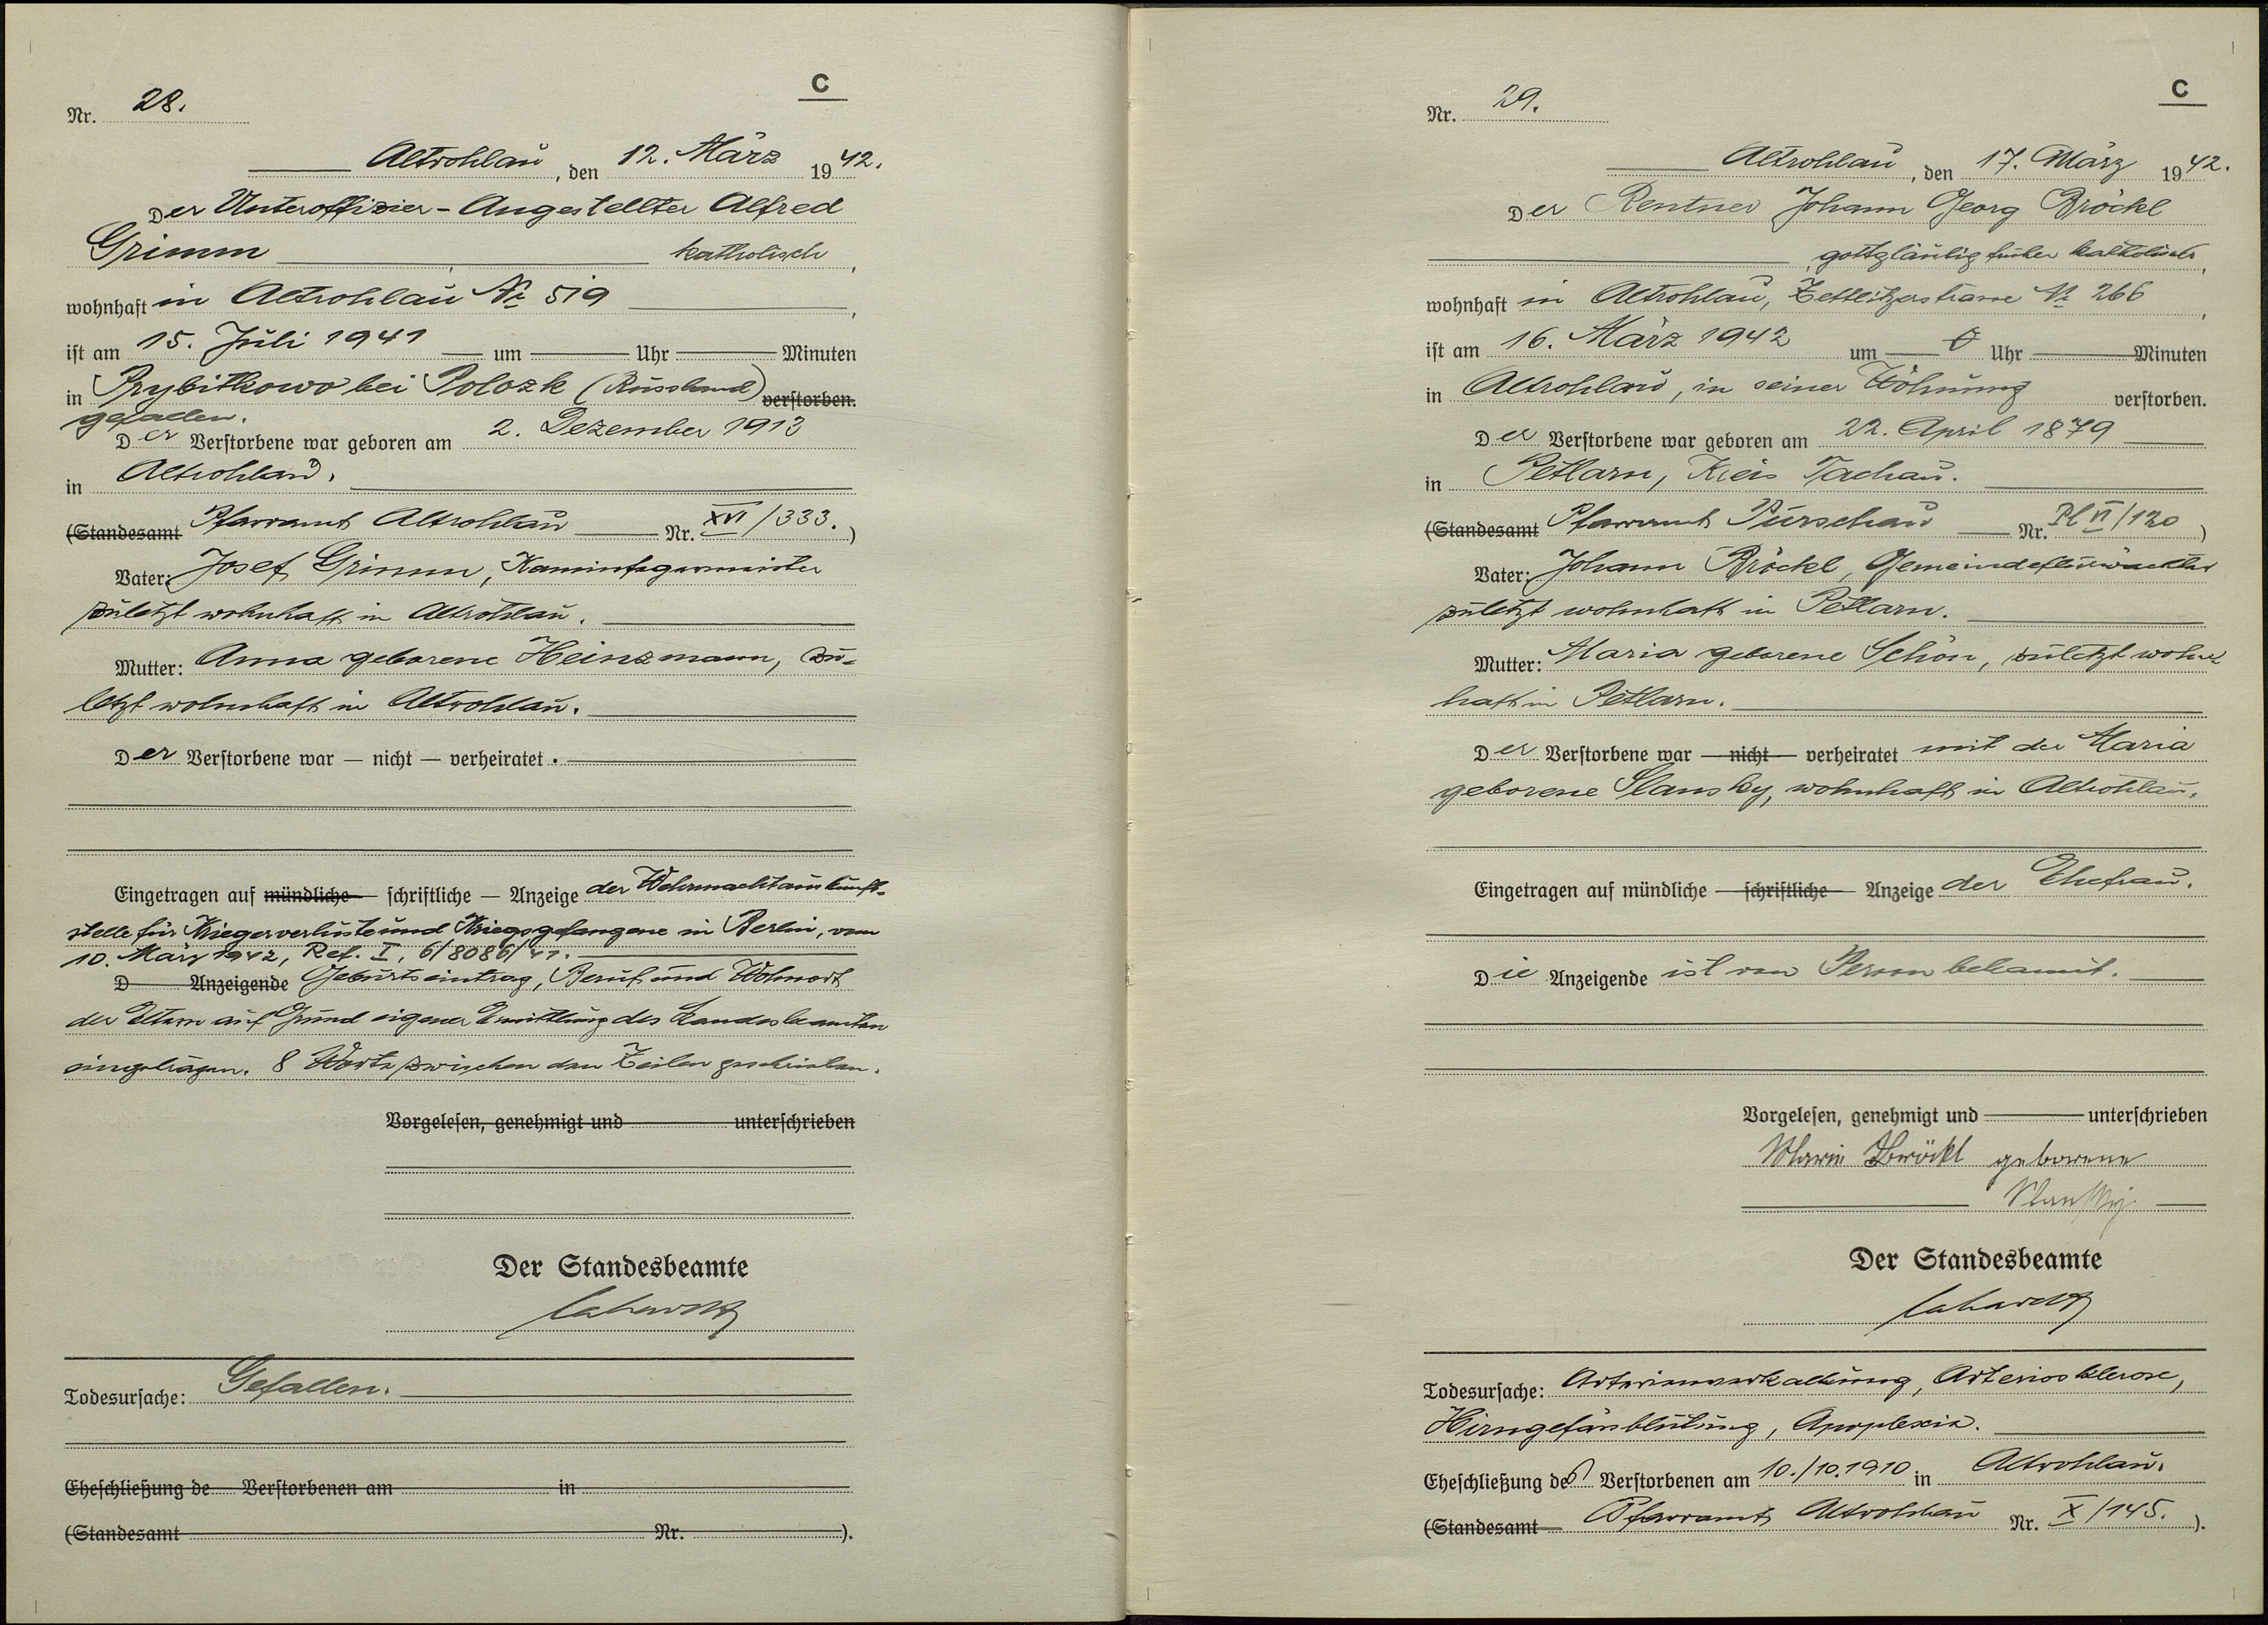 C
Nr. 28.
Altrohlau, den 12. März 1942.
Der Unteroffizier - Angestellter Alfred
Grimm katholisch,
wohnhaft in Altrohlau № 519,
ist am 15. Juli 1941 um Uhr Minuten
in Przybitkowo bei Polozk (Russland) verstorben.
gefallen.
Der Verstorbene war geboren am 2. Dezember 1913
in Altrohlau.
(Standesamt Pfarramt Altrohlau Nr. XVI/333.)
Vater: Josef Grimm, Kaminfegermeister
zuletzt wohnhaft in Altrohlau.
Mutter: Anna geborene Heinzmann, zu-
letzt wohnhaft in Altrohlau.
Der Verstorbene war — nicht — verheiratet.
Eingetragen auf mündliche — schriftliche — Anzeige der Wehrmachtauskunft-
stelle für Kriegerverluste und Kriegsgefangene in Berlin, vom
10. März 1942, Ref. I, 6/8086/41.
D Anzeigende Geburtseintrag, Beruf und Wohnort
der Eltern auf Grund eigener Ermittlung des Standesbeamten
eingetragen. 8 Worte zwischen den Zeilen geschrieben.
Vorgelesen, genehmigt und unterschrieben
Der Standesbeamte
Todesursache: Gefallen.
Eheschließung de Verstorbenen am in
(Standesamt Nr. ).
C
Nr. 29.
Altrohlau, den 17. März 1942.
Der Rentner Johann Georg Bröckl
gottgläubig früher katholisch,
wohnhaft in Altrohlau, Zettlitzerstrasse № 266,
ist am 16. März 1942 um 0 Uhr Minuten
in Altrohlau, in seiner Wohnung verstorben.
Der Verstorbene war geboren am 22. April 1879
in Petlarn, Kreis Tachau.
(Standesamt Pfarramt Purschau Nr. Pl VI/120)
Vater: Johann Bröckl, Gemeindeflurwächter
zuletzt wohnhaft in Petlarn.
Mutter: Maria geborene Schön, zuletzt wohn-
haft in Petlarn.
Der Verstorbene war — nicht — verheiratet mit der Maria
geborene Slansky, wohnhaft in Altrohlau.
Eingetragen auf mündliche — schriftliche — Anzeige der Ehefrau.
Die Anzeigende ist von Person bekannt.
Vorgelesen, genehmigt und unterschrieben
Marie Bröckl geborene
Slansky.
Der Standesbeamte
Todesursache: Arterienverkalkung, Arteriosklerose,
Hirngefässblutung, Apoplexia.
Eheschließung des Verstorbenen am 10./10.1910 in Altrohlau.
(Standesamt Pfarramt Altrohlau Nr. X/145.).